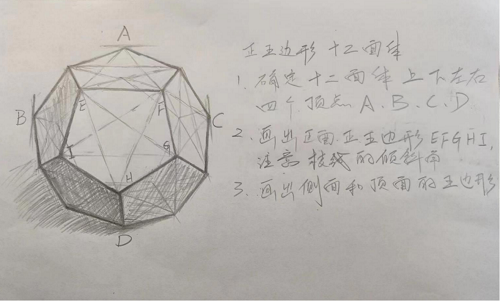 A
B
C
D
E
F
G
H
I
正五边形十二面体
1. 确定十二面体上下左右
四个顶点A.B.C.D
2. 画出正面正五边形EFGHI,
注意接纸的倾斜面
3. 画出侧面和顶面的五边形